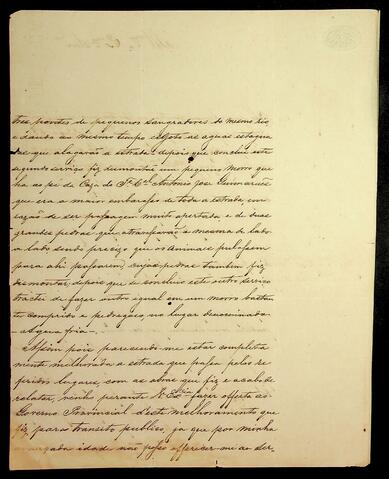 tres pontes de pequenos sangradores do mesmo rio
e dando ao mesmo tempo esgoto as aguas estagna
das que alagavão a estrada: depois que conclui este
segundo serviço fiz desmontar um pequeno morro que
ha ao pé da Caza do Sr. Cel. Antonio Jose Guimarães
que era o maior embaraço de toda a estrada, em
razão de ser passagem muito apertada e de duas
grandes pedras que atravessavão a mesma de lado
a lado sendo precizo que os animaes pulassem
para ahi passarem, cujas pedras tambem fiz
desmontar, depois que se concluio este outro serviço
tractei de fazer outro igual em um morro bastan
te comprido e pedragoso, no lugar denominado
agua fria.
Assim pois parecendo-me estar completa
mente melhorada a estrada que passa pelos re
feridos lugares, com as obras que fiz e acabo de
relatar, venho perante V. Exa. fazer offerta ao
Governo Provincial d'este melhoramento que
fiz para o transito publico, ja que por minha
avançada idade não posso offerecer-me ao ser-